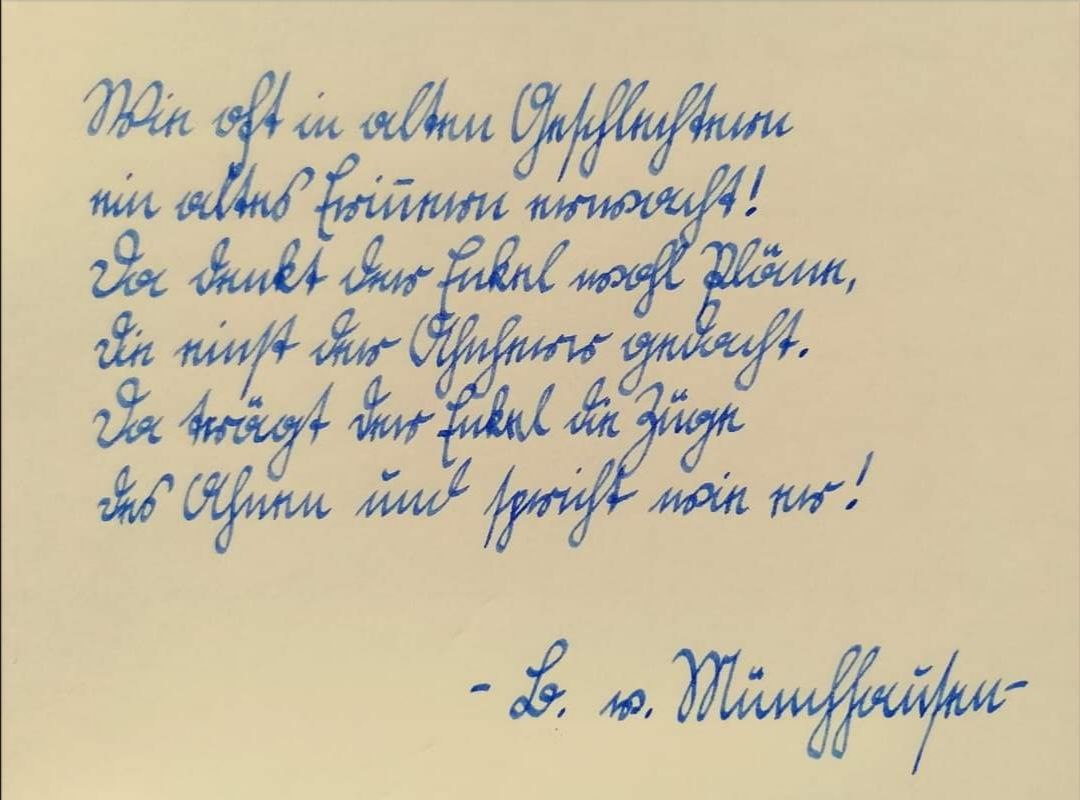 Wie oft in alten Geschlechtern
ein altes Erin̄ern erwacht!
Da denkt der Enkel wohl Pläne,
die einst der Ahnherr gedacht.
Da trägt der Enkel die Züge
des Ahnen und spricht wie er!
- B. v. Münchhausen -